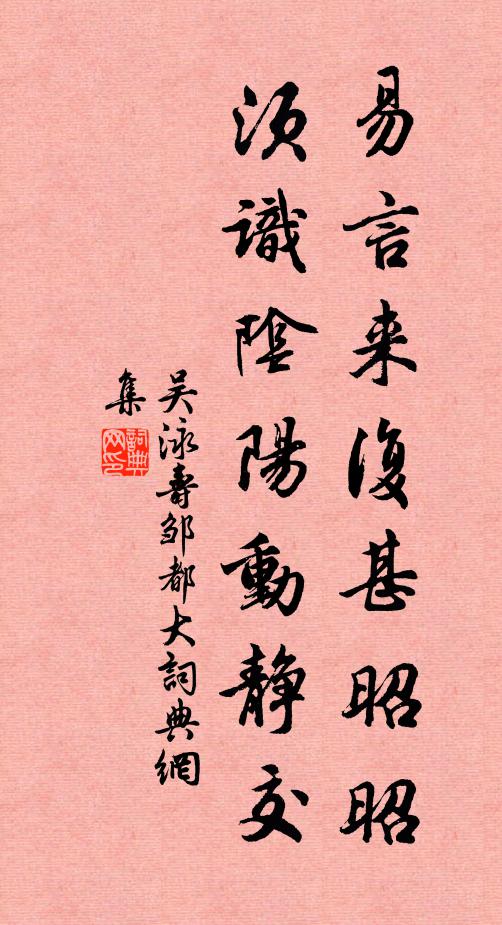 易言来復甚昭昭
須識陰陽動静交
吴泳壽邹都大詞典網
集
詞典網印